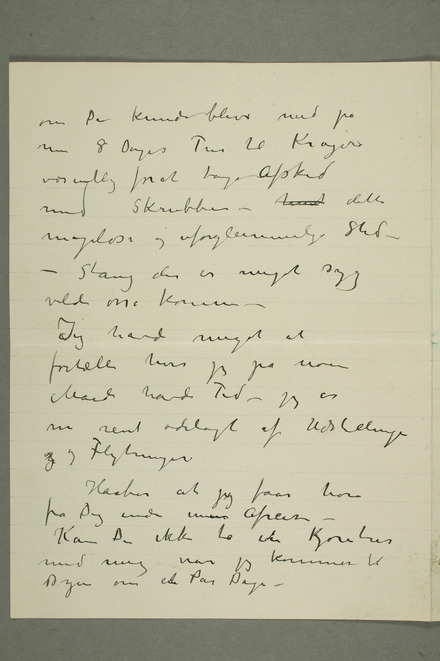 om Du kunde blive med på
en 8 Dages Tur til Kragerø
væsentlig forat tage Afsked
med Skrubben – dette
mageløse og uforglemmelige Sted –
– Stang der er meget syg
vilde også komme –
Jeg havde meget at
fortælle hvis jeg på noen
Maade havde Tid – jeg er
nu rent ødelagt af Udstillinger
og Flytninger
Haaber at jeg faar høre
fra Dig inden min Afreise –
Kan Du ikke ta en Kjøretur
med mig når jeg kommer til
Byen om et Par Dage –